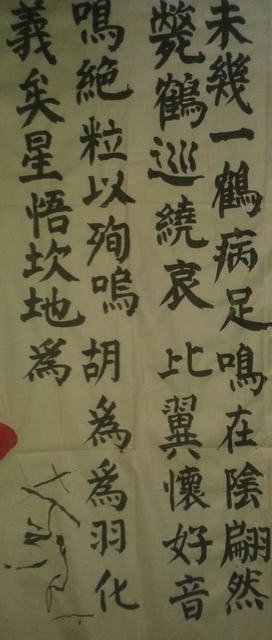 未幾一鶴病足鳴在陰翩然
斃鶴巡繞哀比翼懷好音
鳴絕粒以殉嗚胡為為羽化
義矣星悟坎地為